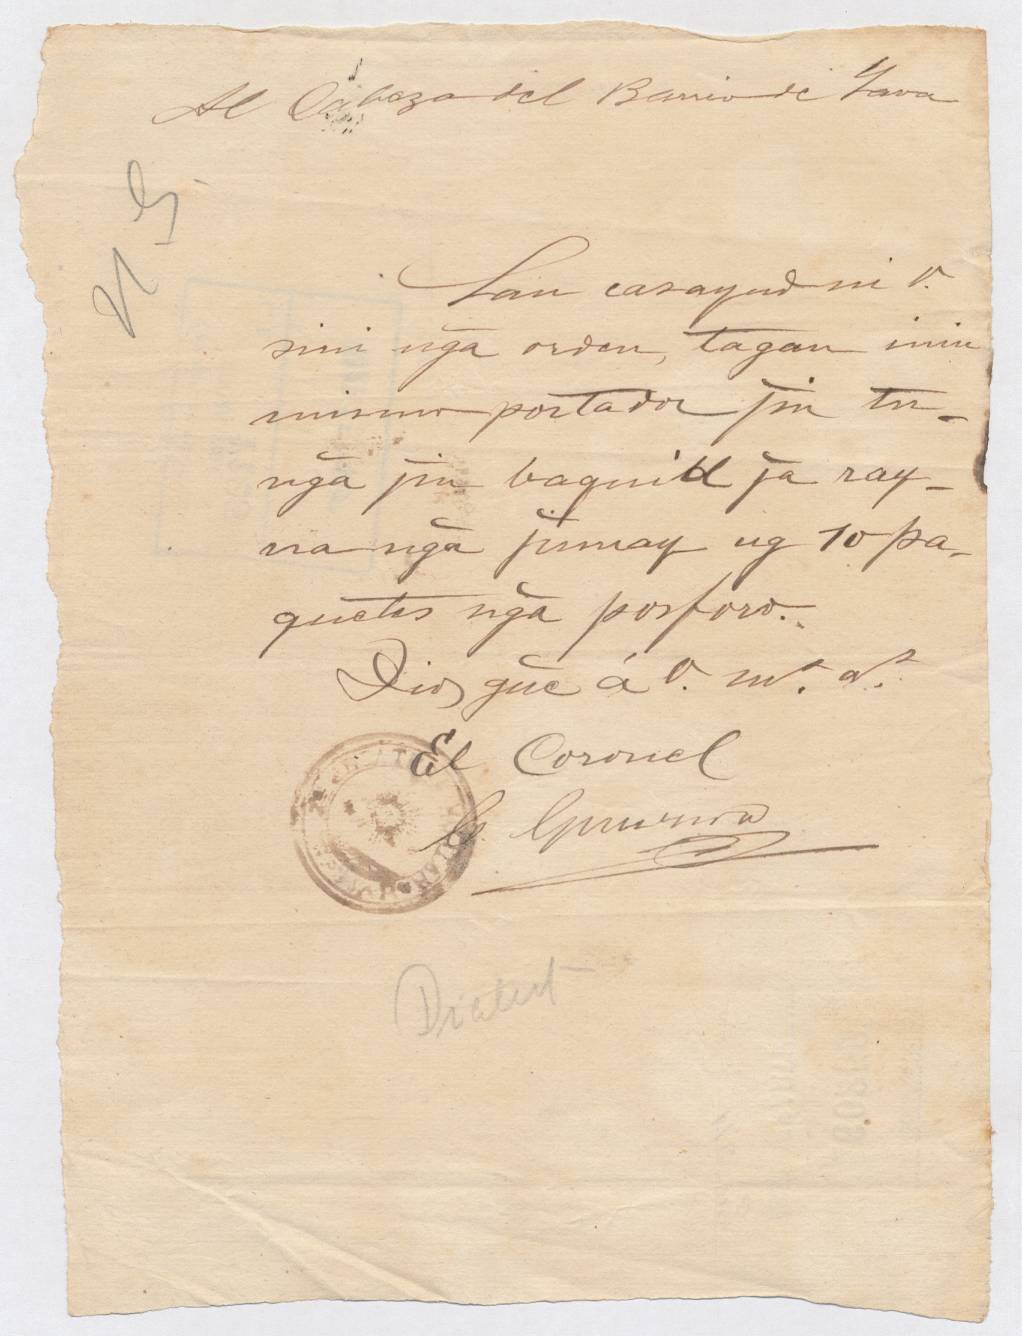 Al Cabeza del Barrio de
N G
Lau casayud ni V.
sini nga orden, tagan inin
mismo portador jin tu-
nga jin baquid ja ray-
na nga jumay ug 10 pa-
quetes nga posforo.
Dios gũe á V. m.s a.s
El Coronel